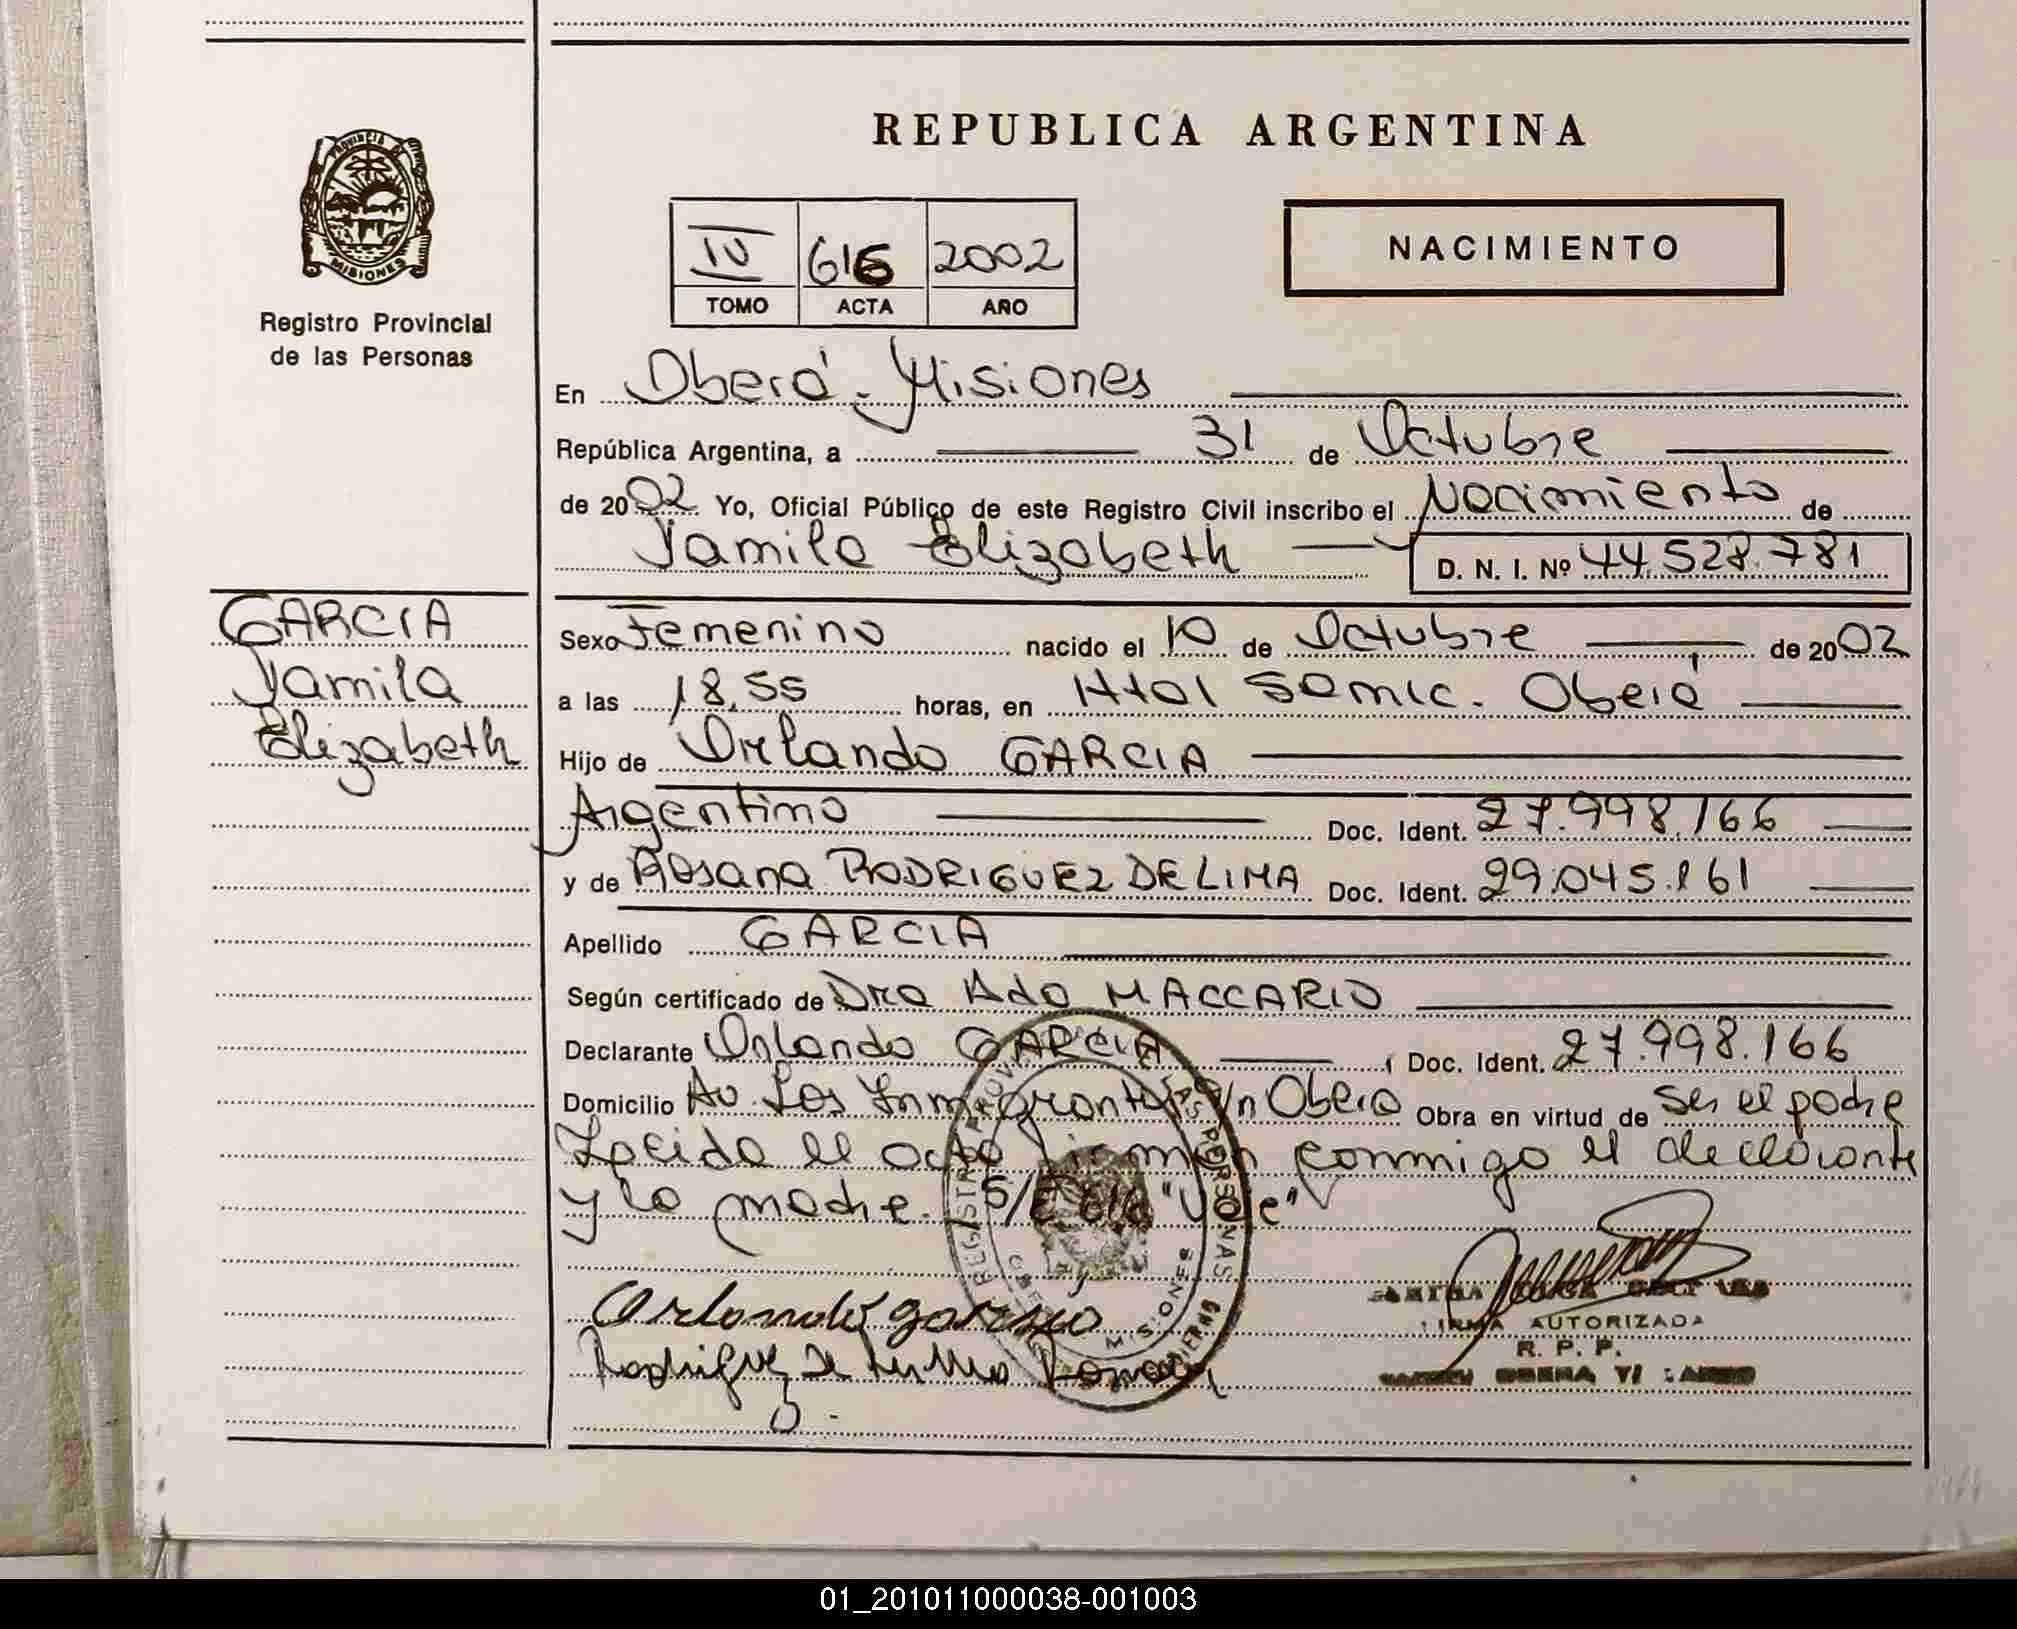 REPUBLICA ARGENTINA
PROVINCIA DE
MISIONES
Registro Provincial
de las Personas
NACIMIENTO
IV 616 2002
TOMO ACTA AÑO
En Oberá - Misiones
República Argentina, a 31 de Octubre
de 2002 Yo, Oficial Público de este Registro Civil inscribo el Nacimiento de
Yamila Elizabeth D. N. I. Nº 44.528.781
GARCIA
Yamila
Elizabeth
Sexo Femenino nacido el 10 de Octubre de 2002
a las 18,55 horas, en Htal Samic. Oberá
Hijo de Orlando GARCIA
Argentino Doc. Ident. 27.998.166
y de Rosana RODRIGUEZ DE LIMA Doc. Ident. 29.045.161
Apellido GARCIA
Según certificado de Dra Ada MACCARIO
Declarante Orlando GARCIA, Doc. Ident. 27.998.166
Domicilio Av. Los Inmigrantes s/n Oberá Obra en virtud de ser el padre
Leida el acta firman conmigo el declarante
y la madre. S/E 616 "Vale"
REGISTRO PROV PERSONAS
MISIONES
Orlando Garcia
Rodriguez de Lima
FIRMA AUTORIZADA
R. P. P.
01_201011000038-001003